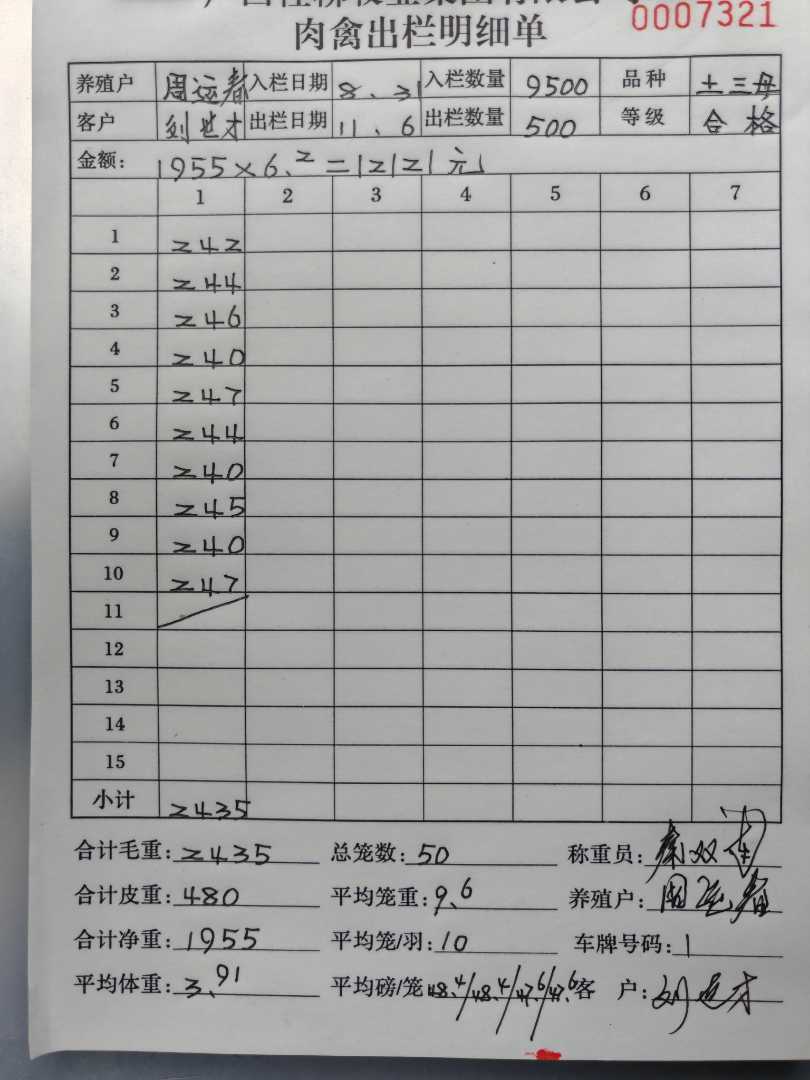 0007321
肉禽出栏明细单
养殖户 周运春 入栏日期 8.31 入栏数量 9500 品种 土三母
客户 刘达才 出栏日期 11.6 出栏数量 500 等级 合格
金额: 1955×6.2=12121元
1 2 3 4 5 6 7
1 242
2 244
3 246
4 240
5 247
6 244
7 240
8 245
9 240
10 247
11
12
13
14
15
小计 2435
合计毛重: 2435 总笼数: 50 称重员:
合计皮重: 480 平均笼重: 9.6 养殖户: 周运春
合计净重: 1955 平均笼/羽: 10 车牌号码: 1
平均体重: 3.91 平均磅/笼 48.4/48.4/47.6/47.6 客户: 刘达才